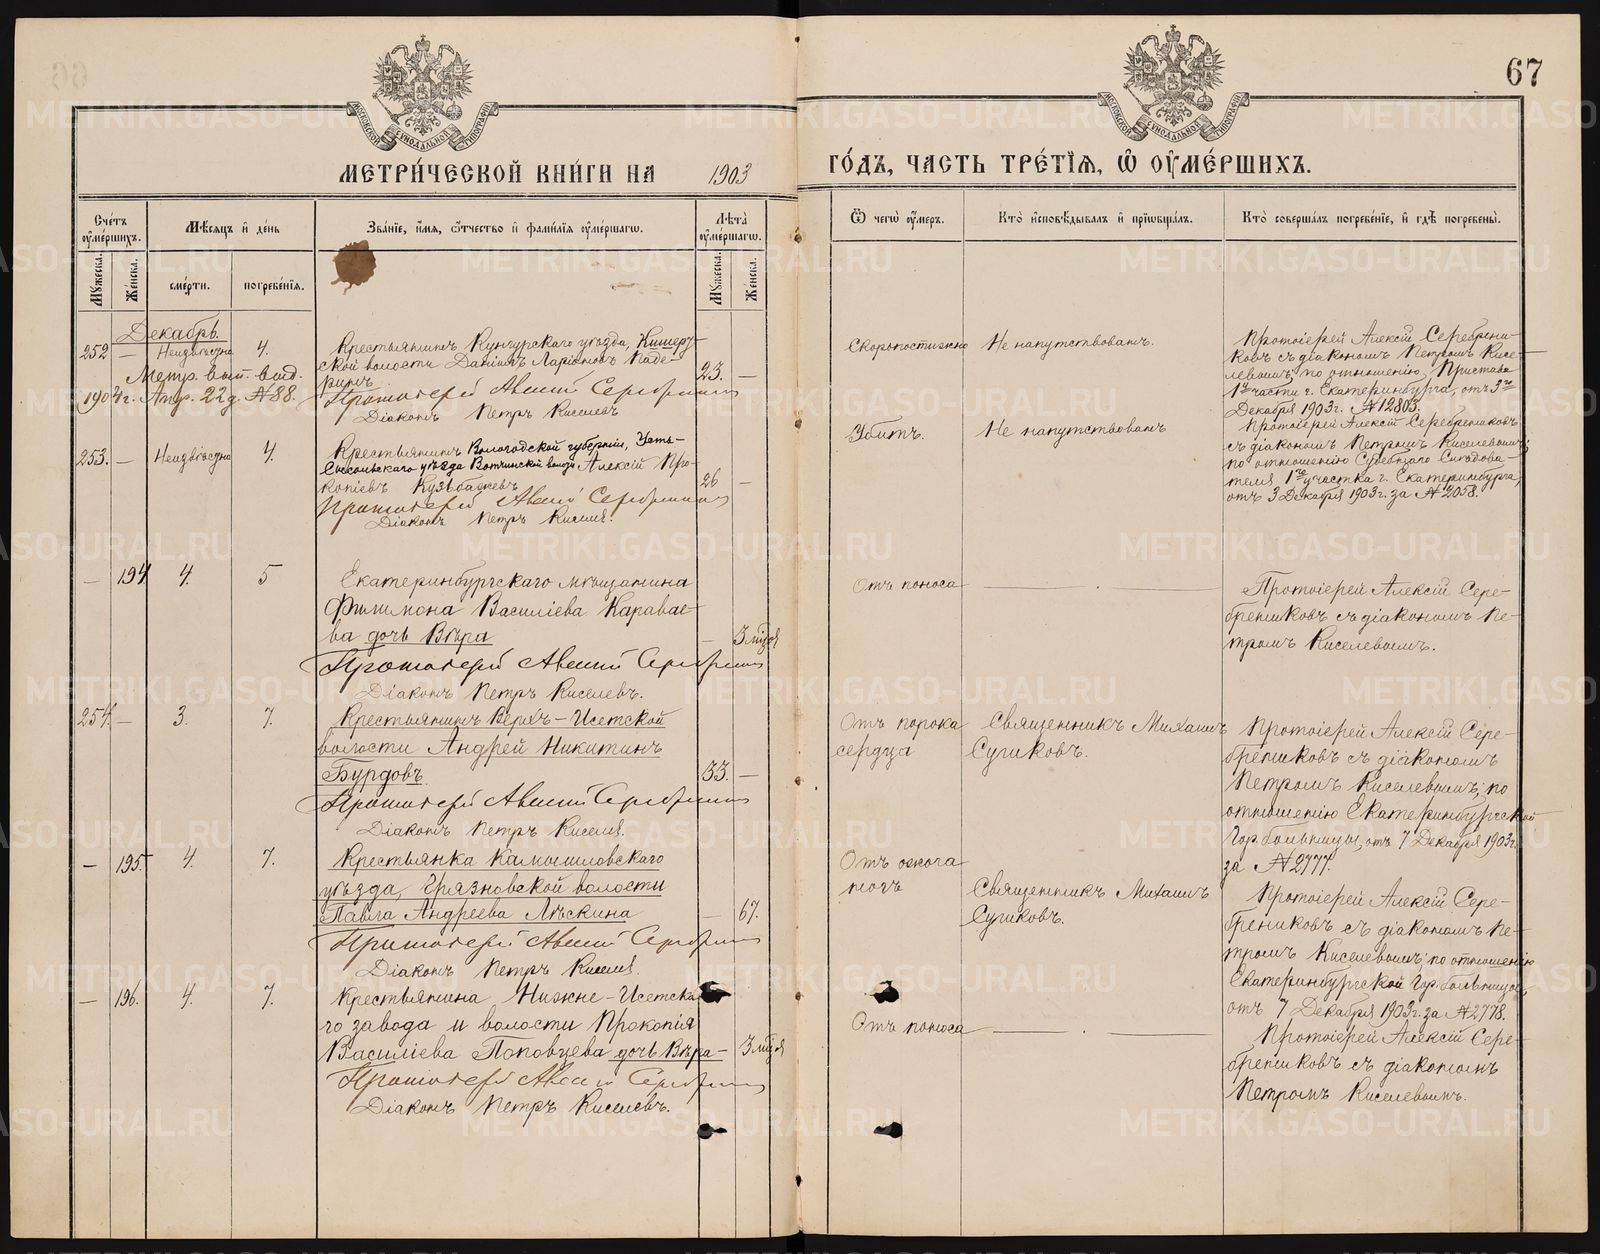 67
МЕТРИ́ЧЕСКОЙ КНИ́ГИ НА 1903 ГО́ДЪ, ЧАСТЬ ТРЕ́ТІѦ, Ѽ ОУ҆МЕ́РШИХЪ.
Сче́тъ оу҆ме́ршихъ.
Мѣ́сѧцъ и҆ де́нь
Зва́нїе, и҆́мѧ, ѻ҆́тчество и҆ фами́лїѧ оу҆ме́ршагѡ.
Лѣ́та оу҆ме́ршагѡ.
Ѿ чегѡ̀ оу҆́меръ.
Кто̀ и҆сповѣ́дывалъ и҆ прїѡбща́лъ.
Кто̀ соверша́лъ погребе́нїе, и҆ гдѣ̀ погребены̀.
Мꙋжеска.
Же́нска.
сме́рти.
погребе́нїѧ.
Мꙋжеска.
Же́нска.
Декабрь.
252 — Неизвѣстна 4.
Метр. вып. выд.
1904 г. Апр. 22 д. № 88.
Крестьянинъ Кунгурскаго уѣзда, Кишер-
ской волости Даніилъ Ларіоновъ Паде-
ринъ 23. —
Протоіерей Алексій Серебрениковъ
Діаконъ Петръ Киселевъ
Скоропостижно
Не напутствованъ.
Протоіерей Алексій Серебрени-
ковъ съ діакономъ Петромъ Кисе-
левымъ, по отношенію Пристава
1й части г. Екатеринбурга, отъ 3го
Декабря 1903 г. № 12803.
253. — Неизвѣстна 4.
Крестьянинъ Вологодской губерніи, Усть-
Сысольскаго уѣзда Вотчинской волости Алексій Про-
копіевъ 26 —
Протоіерей Алексій Серебрениковъ
Діаконъ Петръ Киселевъ.
Убитъ.
Не напутствованъ
Протоіерей Алексій Серебрениковъ
съ діакономъ Петромъ Киселевымъ;
по отношенію Судебнаго Слѣдова-
теля 1го участка г. Екатеринбурга,
отъ 3 Декабря 1903 г. за № 2058.
— 194 4. 5
Екатеринбургскаго мѣщанина
Филимона Василіева Каравае-
ва дочь Вѣра — 3 мѣсяц.
Протоіерей Алексій Серебрениковъ
Діаконъ Петръ Киселевъ.
Отъ поноса
Протоіерей Алексій Сере-
брениковъ съ діакономъ Пе-
тромъ Киселевымъ.
254. — 3. 7.
Крестьянинъ Верхъ-Исетской
волости Андрей Никитинъ
Бурдовъ 33. —
Протоіерей Алексій Серебрениковъ
Діаконъ Петръ Киселевъ.
Отъ порока
сердца
Священникъ Михаилъ
Сушковъ.
Протоіерей Алексій Сере-
брениковъ съ діакономъ
Петромъ Киселевымъ; по
отношенію Екатеринбургской
Гор. больницы, отъ 7 Декабря 1903 г.
за № 2777.
— 195. 4. 7.
Крестьянка Камышловскаго
уѣзда, Грязновской волости
Павла Андреева Лѣскина — 67.
Протоіерей Алексій Серебрениковъ
Діаконъ Петръ Киселевъ.
Отъ ожога
ногъ
Священникъ Михаилъ
Сушковъ.
Протоіерей Алексій Сере-
брениковъ съ діакономъ Пе-
тромъ Киселевымъ; по отношенію
Екатеринбургской Гор. больницы,
отъ 7 Декабря 1903 г. за № 2778.
— 196. 4. 7.
Крестьянина Нижне-Исетска-
го завода и волости Прокопія
Василіева Поповцева дочь Вѣра — 3 мѣсяц.
Протоіерей Алексій Серебрениковъ
Діаконъ Петръ Киселевъ.
Отъ поноса
Протоіерей Алексій Сере-
брениковъ съ діакономъ
Петромъ Киселевымъ.
METRIKI.GASO-URAL.RU